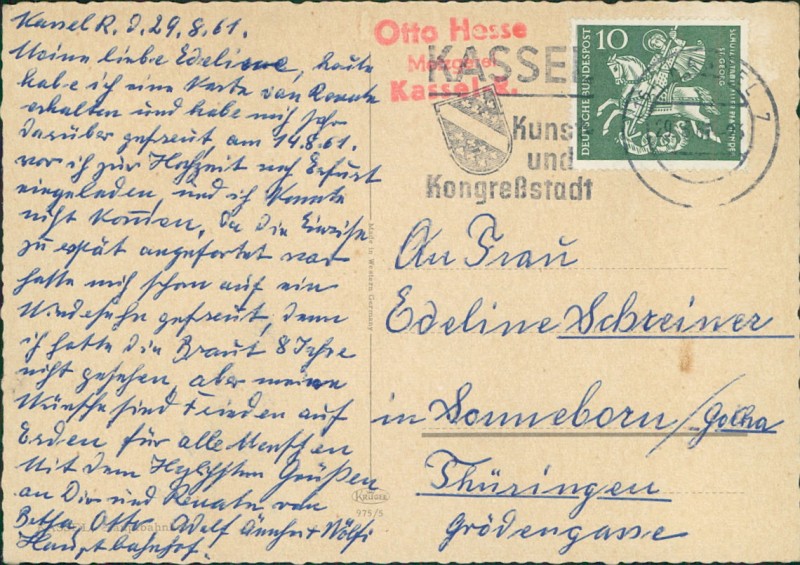 Kassel R. d. 29.8.61.
Meine liebe Edeline, heute
habe ich eine Karte von Renate
erhalten und habe mich sehr
darüber gefreut, am 14.8.61.
war ich zur Hochzeit nach Erfurt
eingeladen, und ich konnte
nicht kommen, da die Einreise
zu spät angefortet war
hatte mich schon auf ein
Wiedesehn gefreut, denn
ich hatte die Braut 8 Jahre
nicht gesehen, aber meine
Wünsche sind Frieden auf
Erden für alle Menschen
Mit dem Herzlichsten Grüßen
an Dir und Renate von
Betha, Otto, Adolf Ännchen + Wölfi
Hauptbahnhof.
Otto Hesse
Metzgerei
Kassel R.
KASSEL
Kunst
und
Kongreßstadt
10
DEUTSCHE BUNDESPOST
ST. GEORG
Made in Western Germany
Krüger
975/5
An Frau
Edeline Schreiner
in Sonneborn/Gotha
Thüringen
Grödengasse